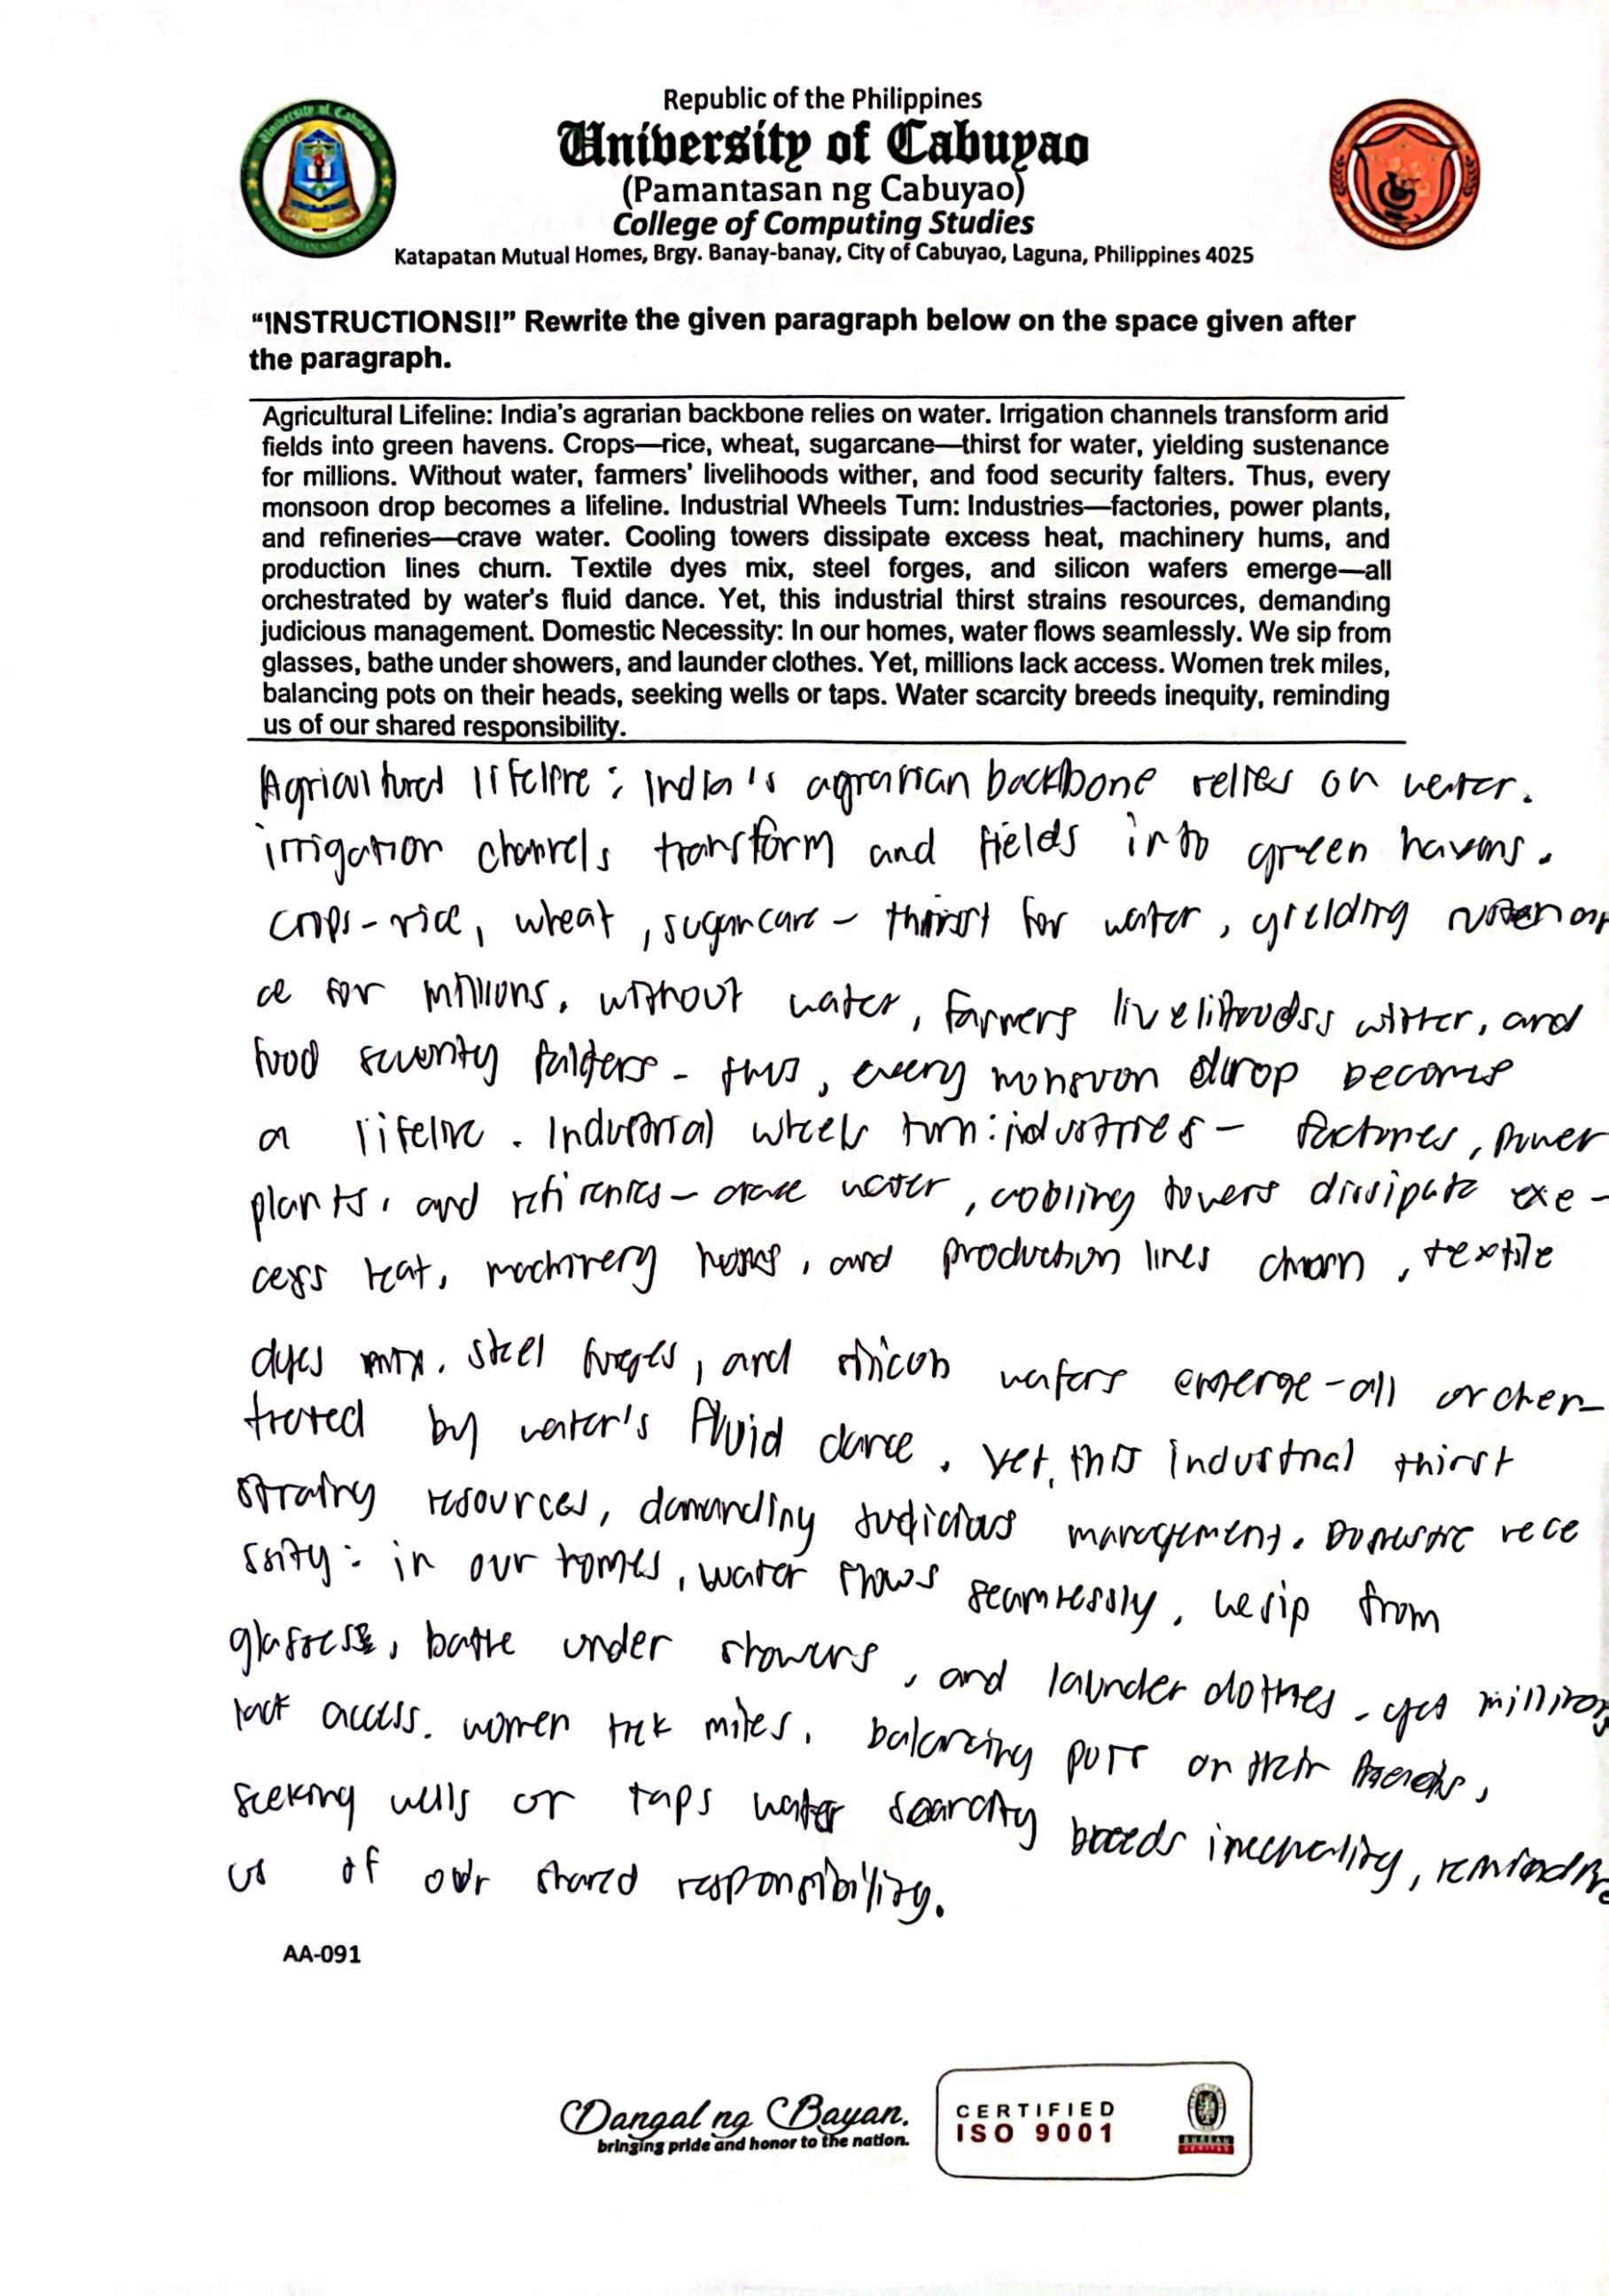 Republic of the Philippines
University of Cabuyao
(Pamantasan ng Cabuyao)
College of Computing Studies
Katapatan Mutual Homes, Brgy. Banay-banay, City of Cabuyao, Laguna, Philippines 4025
“INSTRUCTIONS!!” Rewrite the given paragraph below on the space given after
the paragraph.
Agricultural Lifeline: India’s agrarian backbone relies on water. Irrigation channels transform arid
fields into green havens. Crops—rice, wheat, sugarcane—thirst for water, yielding sustenance
for millions. Without water, farmers’ livelihoods wither, and food security falters. Thus, every
monsoon drop becomes a lifeline. Industrial Wheels Turn: Industries—factories, power plants,
and refineries—crave water. Cooling towers dissipate excess heat, machinery hums, and
production lines churn. Textile dyes mix, steel forges, and silicon wafers emerge—all
orchestrated by water’s fluid dance. Yet, this industrial thirst strains resources, demanding
judicious management. Domestic Necessity: In our homes, water flows seamlessly. We sip from
glasses, bathe under showers, and launder clothes. Yet, millions lack access. Women trek miles,
balancing pots on their heads, seeking wells or taps. Water scarcity breeds inequity, reminding
us of our shared responsibility.
Agricultural lifeline : India's agrarian backbone relies on water.
irrigation channels transform and fields into green havens.
crops - rice, wheat, sugarcane - thirst for water, yielding
ce for millions. without water, farmers livelihoods wither, and
food security falters - thus, every monsoon drop becomes
a lifeline. Industrial wheels turn: industries - factories, power
plants, and refineries - crave water, cooling towers dissipate exe -
cess heat, machinery hums, and production lines churn, textile
dyes mix. steel forges, and silicon wafers emerge - all orches-
trated by water's fluid dance. yet, this industrial thirst
strains resources, demanding judicious management. Domestic nece
ssity: in our homes, water flows seamlessly. we sip from
glasses, bathe under showers, and launder clothes - yet millions
lack access. women trek miles, balancing pots on their heads,
seeking wells or taps water scarcity breeds remindin
us of our shared responsibility.
AA-091
Dangal ng Bayan.
bringing pride and honor to the nation.
CERTIFIED
ISO 9001
BUREAU
VERITAS